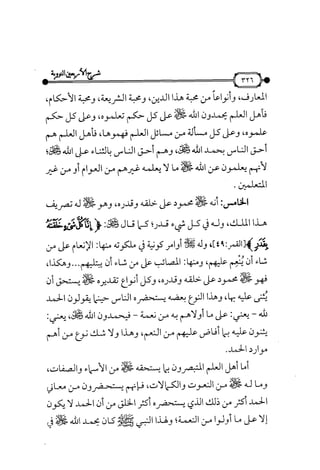 شرح الأربعين النووية
٣٢٦
المعارف، وأنواعاً من محبة هذا الدين، ومحبة الشريعة، ومحبة الأحكام،
فأهل العلم يحمدون الله ﷻ على كل حكم تعلموه، وعلى كل حكم
علموه، وعلى كل مسألة من مسائل العلم فهموها، فأهل العلم هم
أحق الناس بحمد الله ﷻ، وهم أحق الناس بالثناء على الله ﷻ؛
لأنهم يعلمون عن الله ﷻ ما لا يعلمه غيرهم من العوام أو من غير
المتعلمين.
الخامس: أنه ﷻ محمود على خلقه وقدره، وهو ﷻ له تصريف
هذا الملك، وله في كل شيء قدر؛ كما قال: ﴿إِنَّا كُلَّ شَيْءٍ خَلَقْنَاهُ
بِقَدَرٍ﴾ [القمر:٤٩]، وله ﷻ أوامر كونية في ملكوته منها: الإنعام على من
شاء أن يُنْعِم عليهم، ومنها: المصائب على من شاء أن يبتليهم...وهكذا،
فهو ﷻ محمود على خلقه وقدره، وكل أنواع تقديره ﷻ يستحق أن
يُثنى عليه بها، وهذا النوع بعضه يستحضره الناس حينما يقولون الحمد
لله - يعني: على ما أولاهم به من نعمة - فيحمدون الله ﷻ، يعني:
يثنون عليه بما أفاض عليهم من النعم، وهذا ولا شك نوع من أهم
موارد الحمد.
أما أهل العلم المتبصرون بما يستحقه ﷻ من الأسماء والصفات،
وما له ﷻ من النعوت والكمالات، فإنهم يستحضرون من معاني
الحمد أكثر من ذلك الذي يستحضره أكثر الخلق من أن الحمد لا يكون
إلا على ما أولوا من النعمة؛ ولهذا النبي ﷺ كان يحمد الله ﷻ في